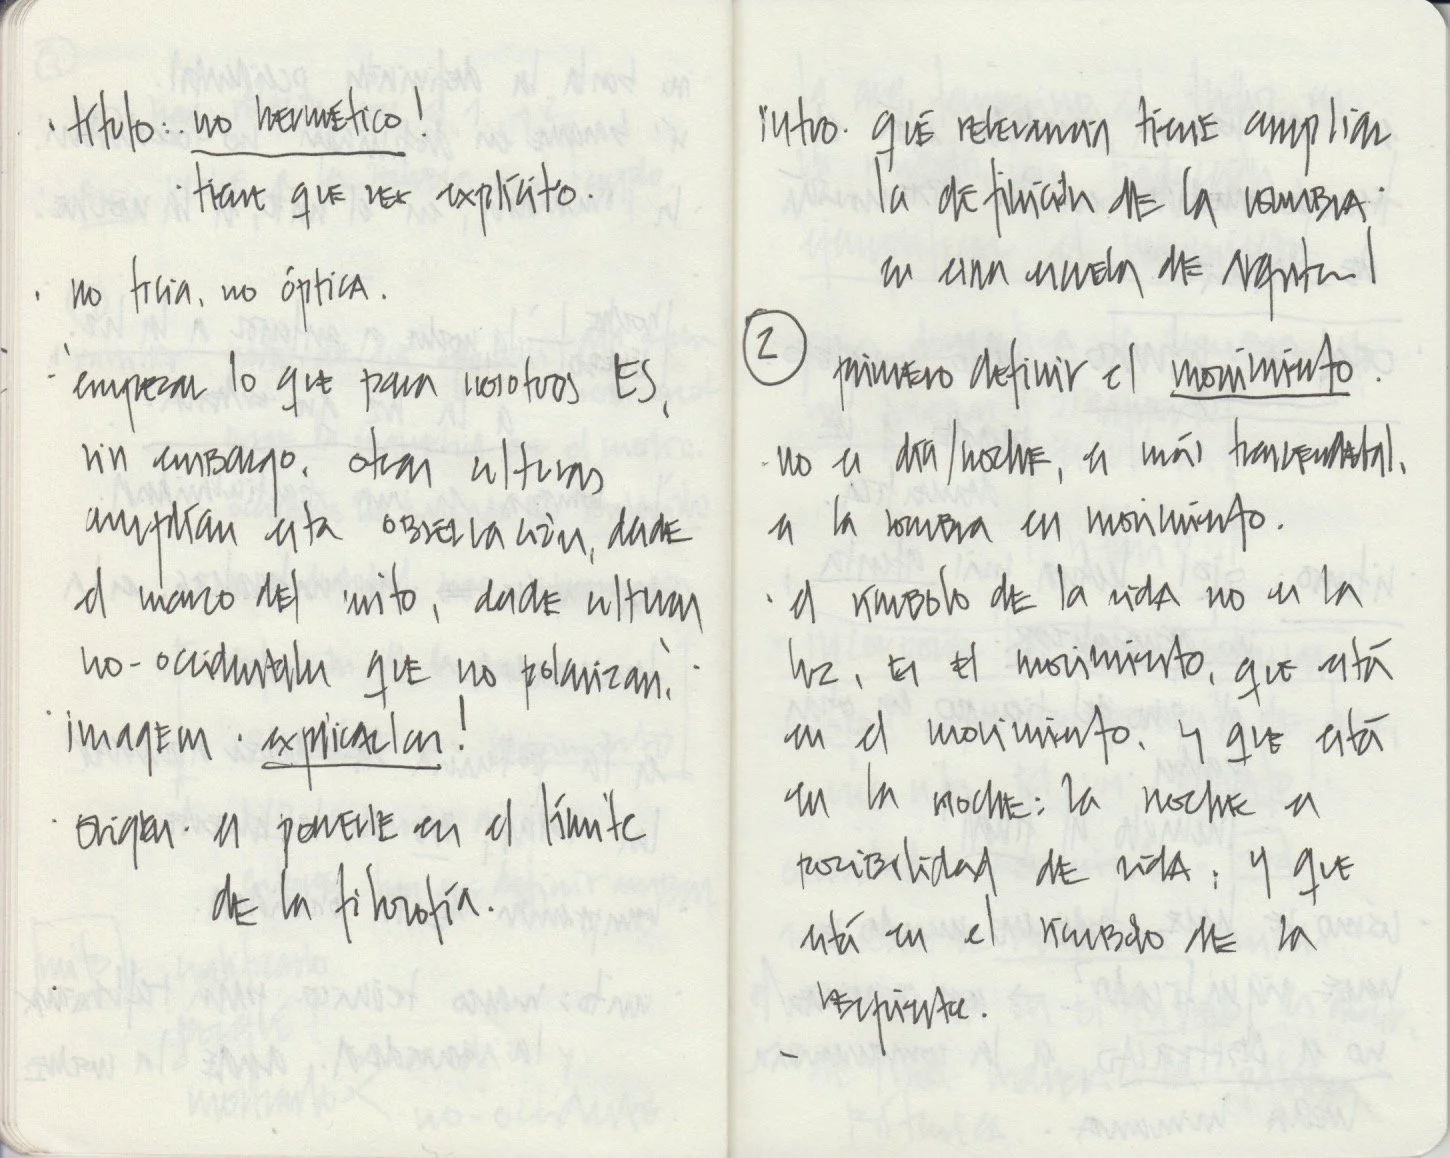 · título: no hermético!
· tiene que ser explícito.
· no física, no óptica.
empezar lo que para nosotros ES,
sin embargo, otras culturas
amplían esta observación, desde
el marco del mito, desde culturas
no-occidentales que no polarizan.
imagen · explicarlas!
· origen · es ponerse en el límite
de la filosofía.
intro. qué relevancia tiene ampliar
la definición de la sombra
en una escuela de !
2
primero definir el movimiento.
- no es día/noche, es más
es la sombra en movimiento.
· el símbolo de la vida no es la
luz, Es El movimiento, que está
en el movimiento, y que está
en la noche: la noche es
posibilidad de vida; y que
está en el símbolo de la
serpiente.